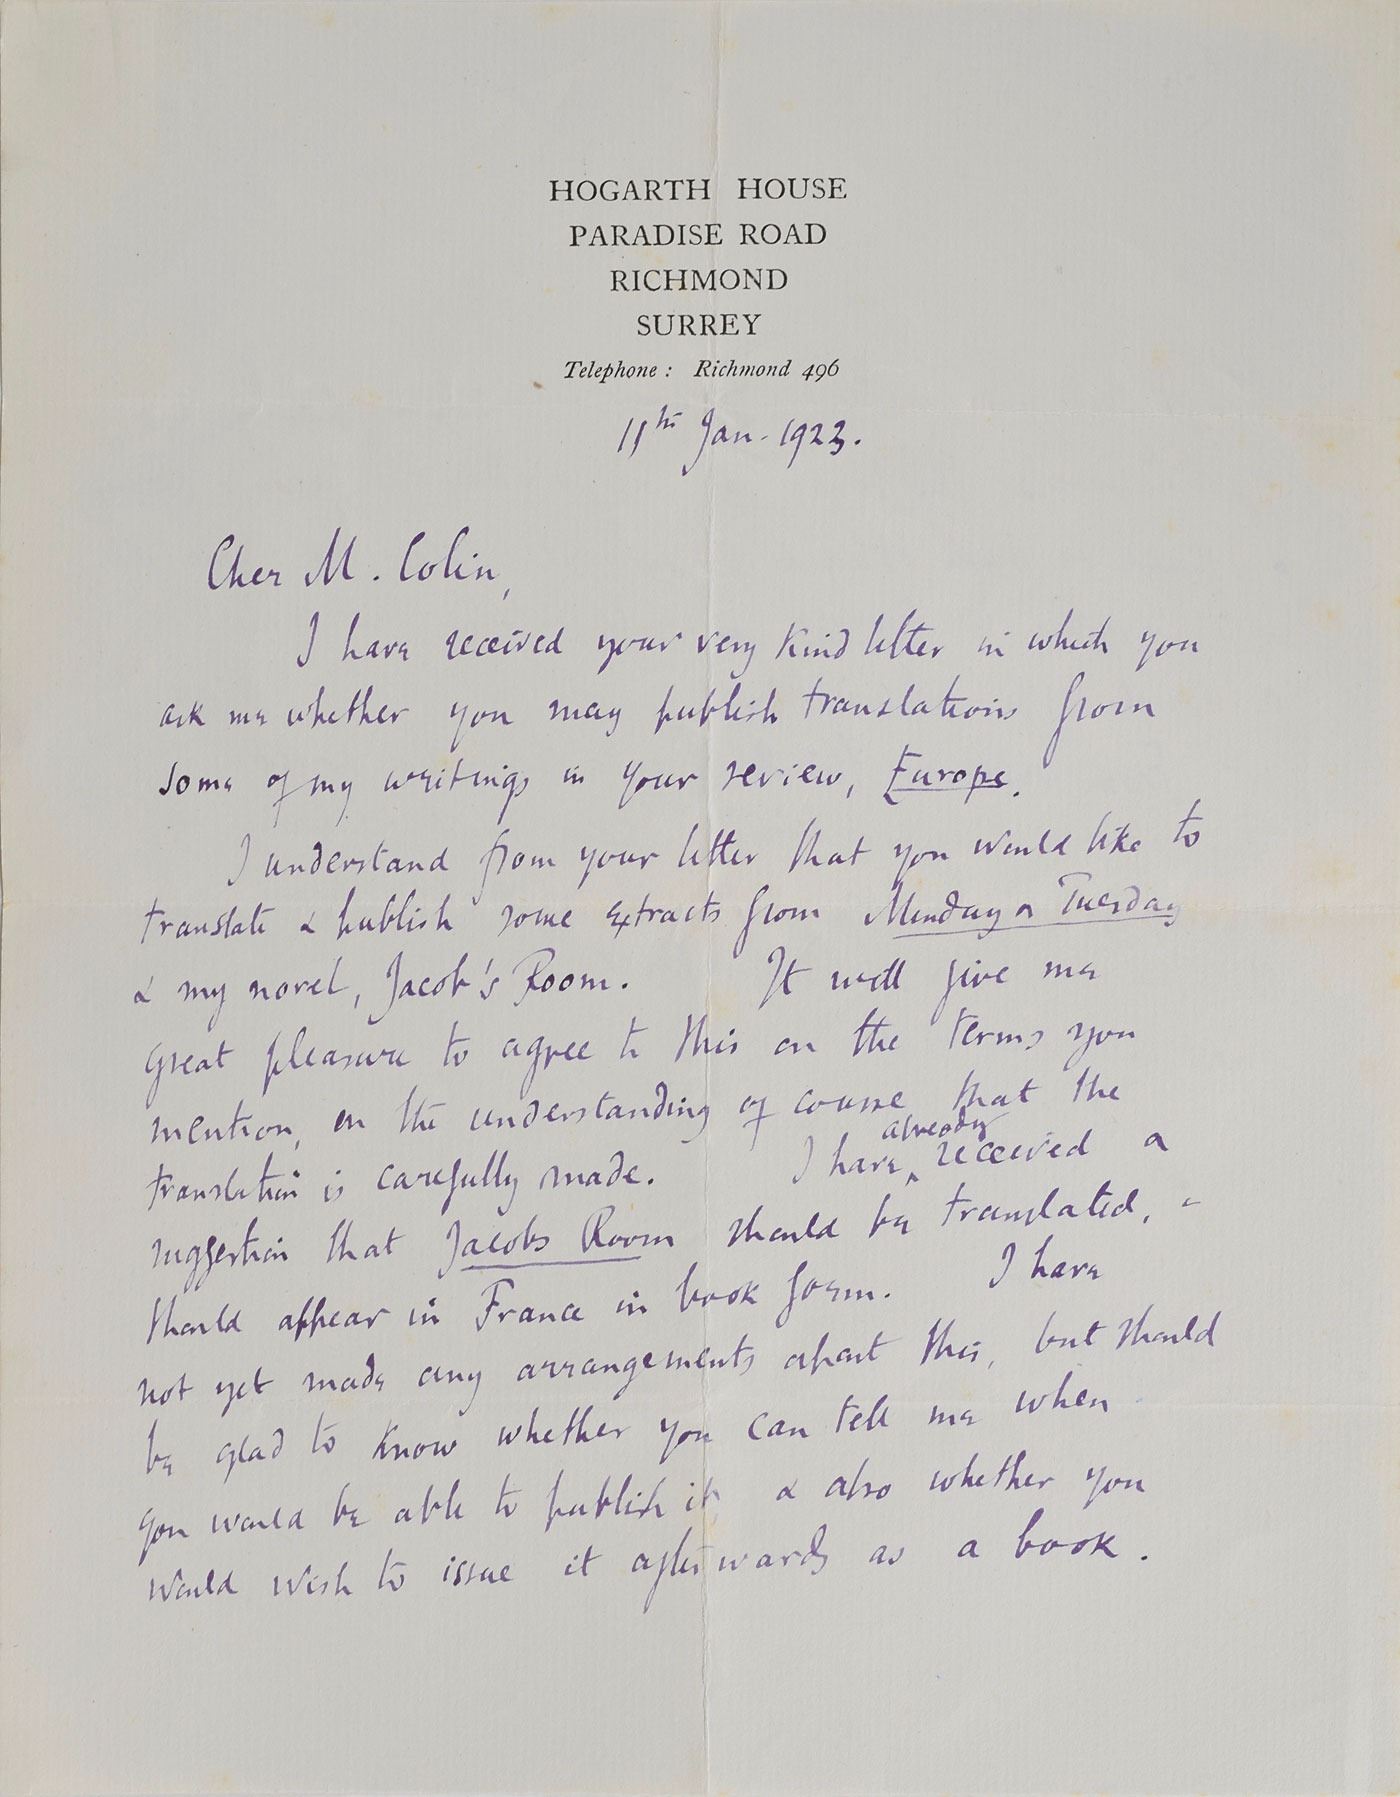 HOGARTH HOUSE
PARADISE ROAD
RICHMOND
SURREY
Telephone : Richmond 496
11th Jan. 1923.
Cher M. Colin,
I have received your very kind letter in which you
ask me whether you may publish translations from
some of my writings in your review, Europe.
I understand from your letter that you would like to
translate & publish some extracts from Monday or Tuesday
& my novel, Jacob's Room. It will give me
great pleasure to agree to this on the terms you
mention, on the understanding of course that the
already
translation is carefully made. I have received a
suggestion that Jacobs Room should be translated, &
should appear in France in book form. I have
not yet made any arrangements about this, but should
be glad to know whether you can tell me when
you would be able to publish it, & also whether you
would wish to issue it afterwards as a book.